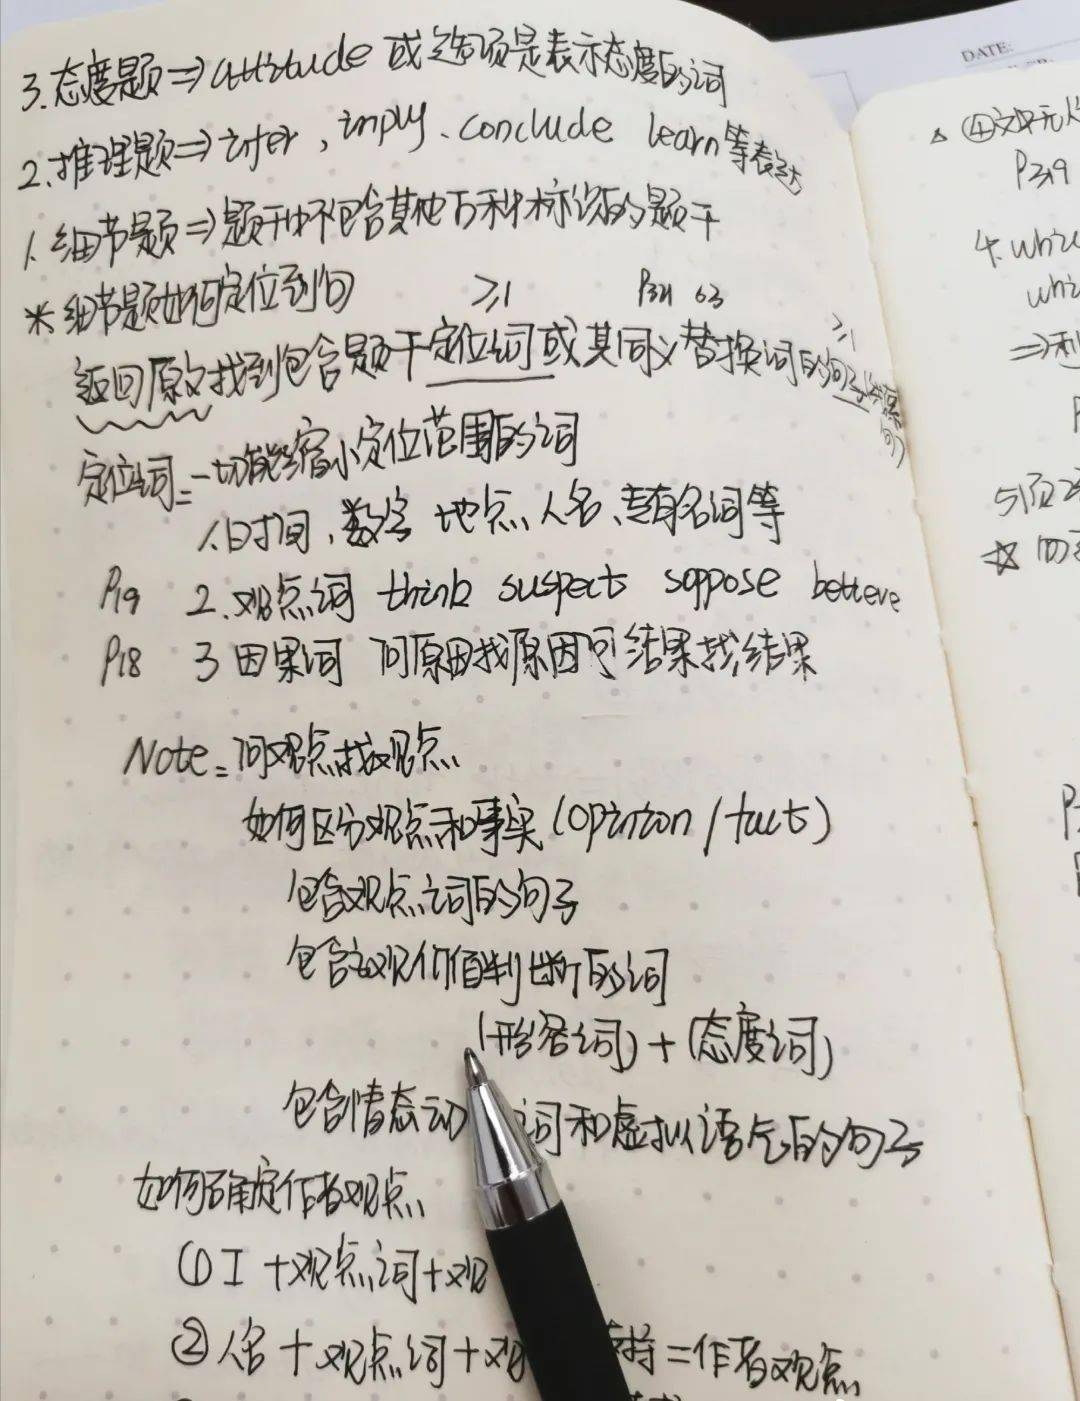 3.态度题⇒attitude 或选项是表示态度的词
2.推理题⇒infer, imply、conclude learn等表达
1.细节题⇒题干中不包含其他万种标识的题干
※细节题如何定位到句
≥1 P321 63
返回原文找到包含题干定位词或其同义替换词的句子
≥1
定位词=一切能缩小定位范围的词
1.时间,数字 地点、人名、专有名词等
P19 2.观点词 think suspect suppose believe
P18 3 因果词 问原因找原因问结果找结果
Note=问观点找观点
如何区分观点和事实(opinion/fact)
包含观点词的句子
包含主观价值判断的词
(形容词)+(态度词)
包含情态动词和虚拟语气的句子
如何确定作者观点
①I+观点词+观
②人名+观点词+观 支持=作者观点
DATE:
△ ④文好无
P319
4.
⇒
☆